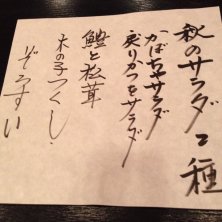 秋のサラダ2種
かぼちゃサラダ
戻りかつをサラダ
鱧と松茸
木の子づくし
ぞうすい